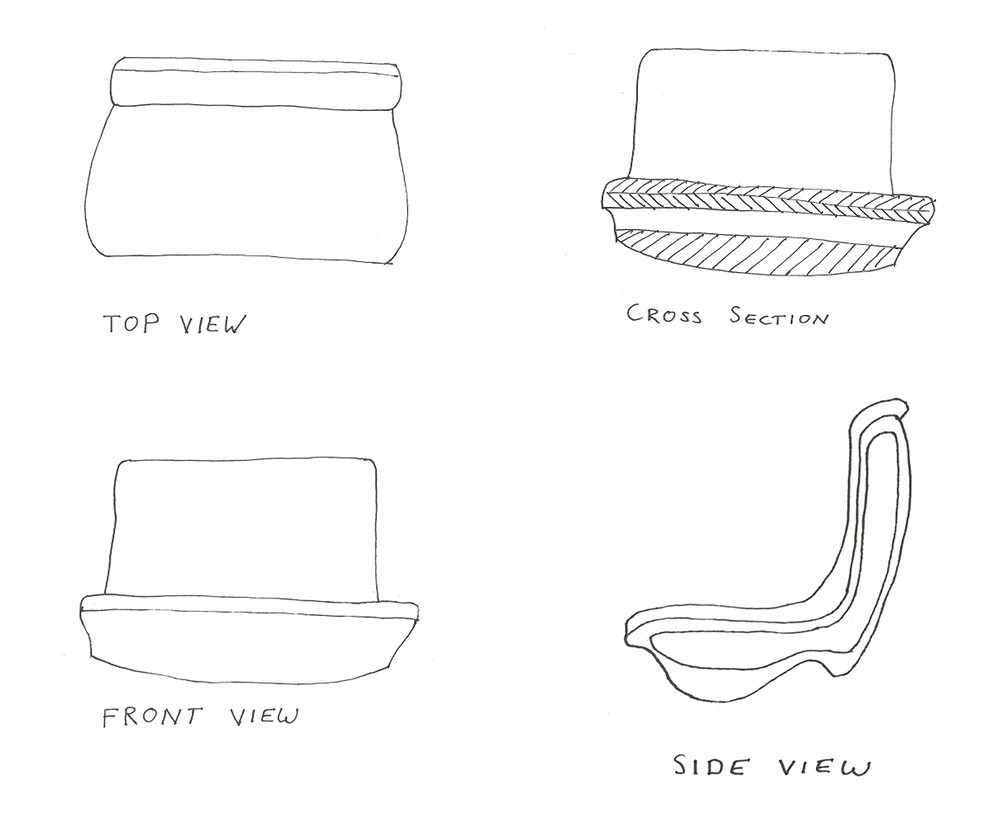 TOP VIEW
CROSS SECTION
FRONT VIEW
SIDE VIEW